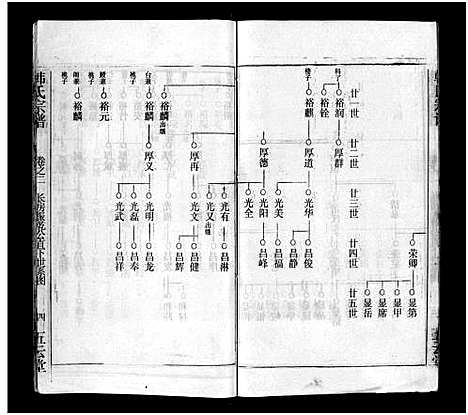 廿一世
廿二世
廿三世
廿四世
廿五世
荣卿
显第
显甲
显席
显岳
裕润
裕铨
裕麒
厚群
厚道
厚德
光华
光美
光阳
光全
昌俊
昌静
昌福
昌峰
裕麟 出继
厚再
厚义
光有
光又 出继
光文
光明
光磊
光武
昌淋
昌健
昌辉
昌龙
昌奉
昌祥
裕麟
裕元
裕麟
桃子
桃子
韩氏宗谱
卷之二
四